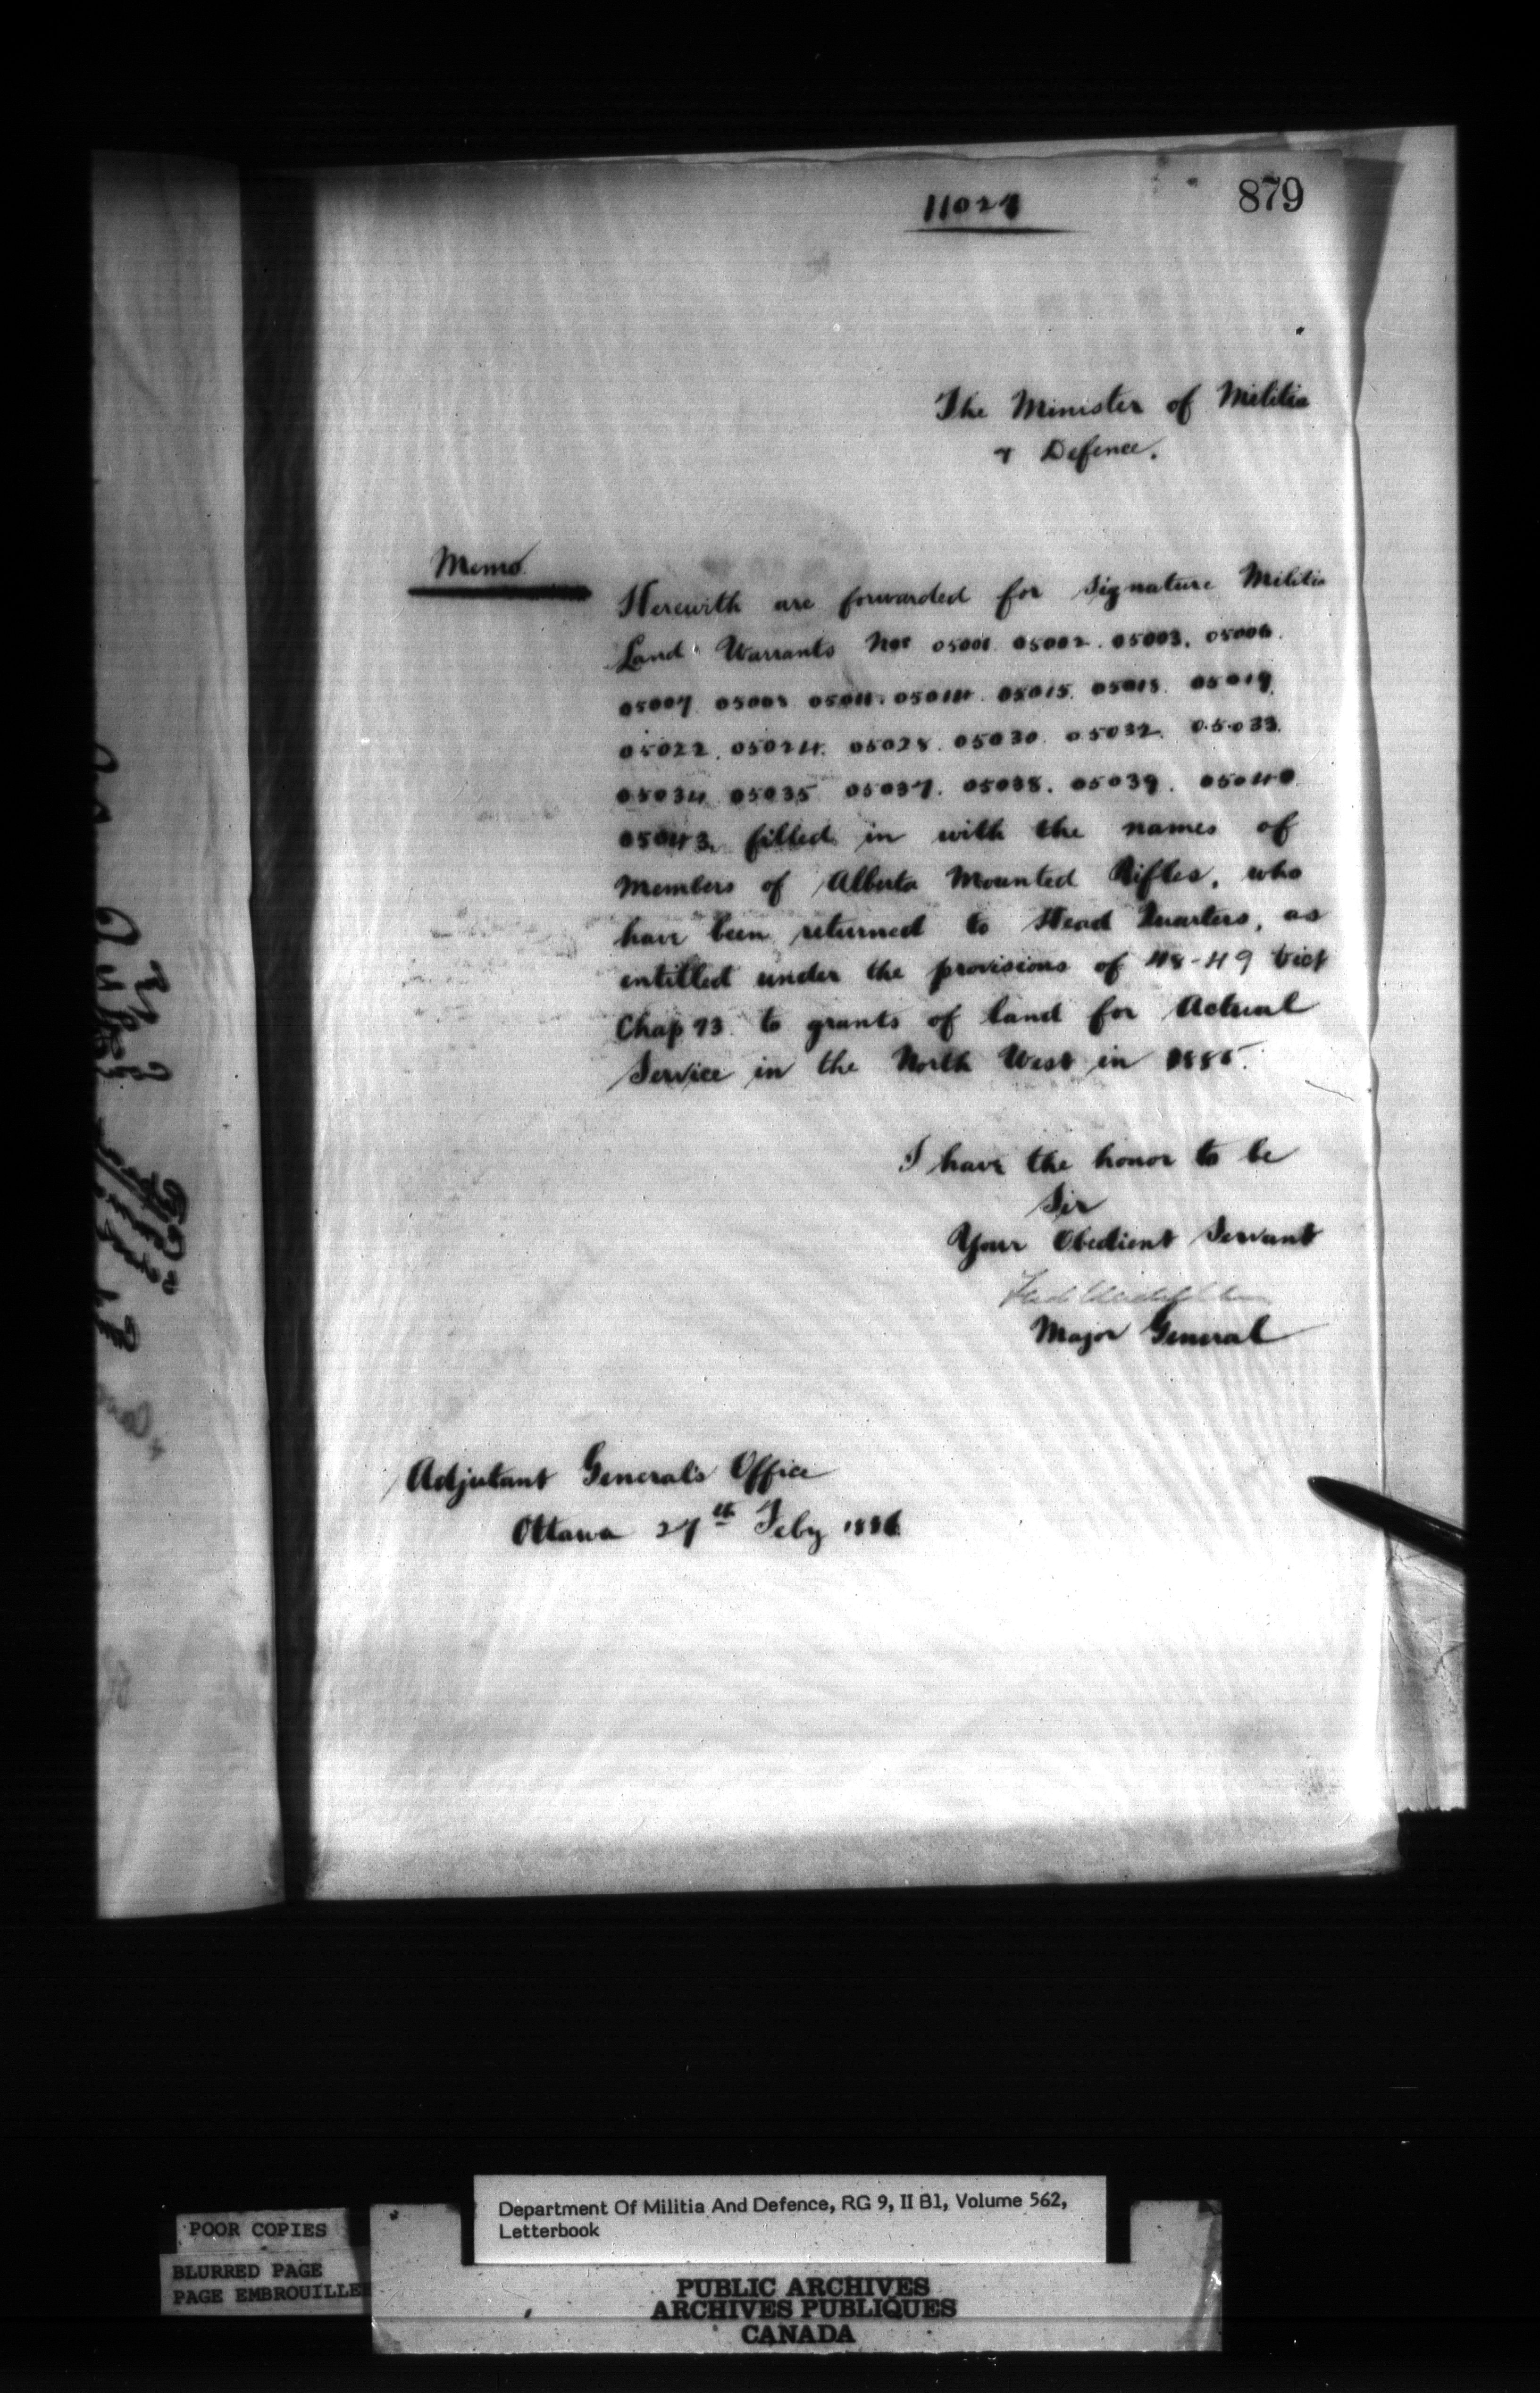 11027
879
The Minister of Militia
& Defence.
Memo.
Herewith are forwarded for Signature Militia
Land Warrants Nos 05001. 05002. 05003. 05006.
05007. 05008. 05011. 05014. 05015. 05018. 05019.
05022. 05024. 05028. 05030. 05032. 05033.
05034. 05035. 05037. 05038. 05039. 05040.
05043. filled in with the names of
Members of Alberta Mounted Rifles, who
have been returned to Head Quarters, as
entitled under the provisions of 48-49 Vict
Chap 73. to grants of land for Actual
Service in the North West in 1885.
I have the honor to be
Sir
Your Obedient Servant
Fred Middleton
Major General
Adjutant General's Office
Ottawa 27th Feby 1886
POOR COPIES
BLURRED PAGE
PAGE EMBROUILLEE
Department Of Militia And Defence, RG 9, II B1, Volume 562,
Letterbook
PUBLIC ARCHIVES
ARCHIVES PUBLIQUES
CANADA